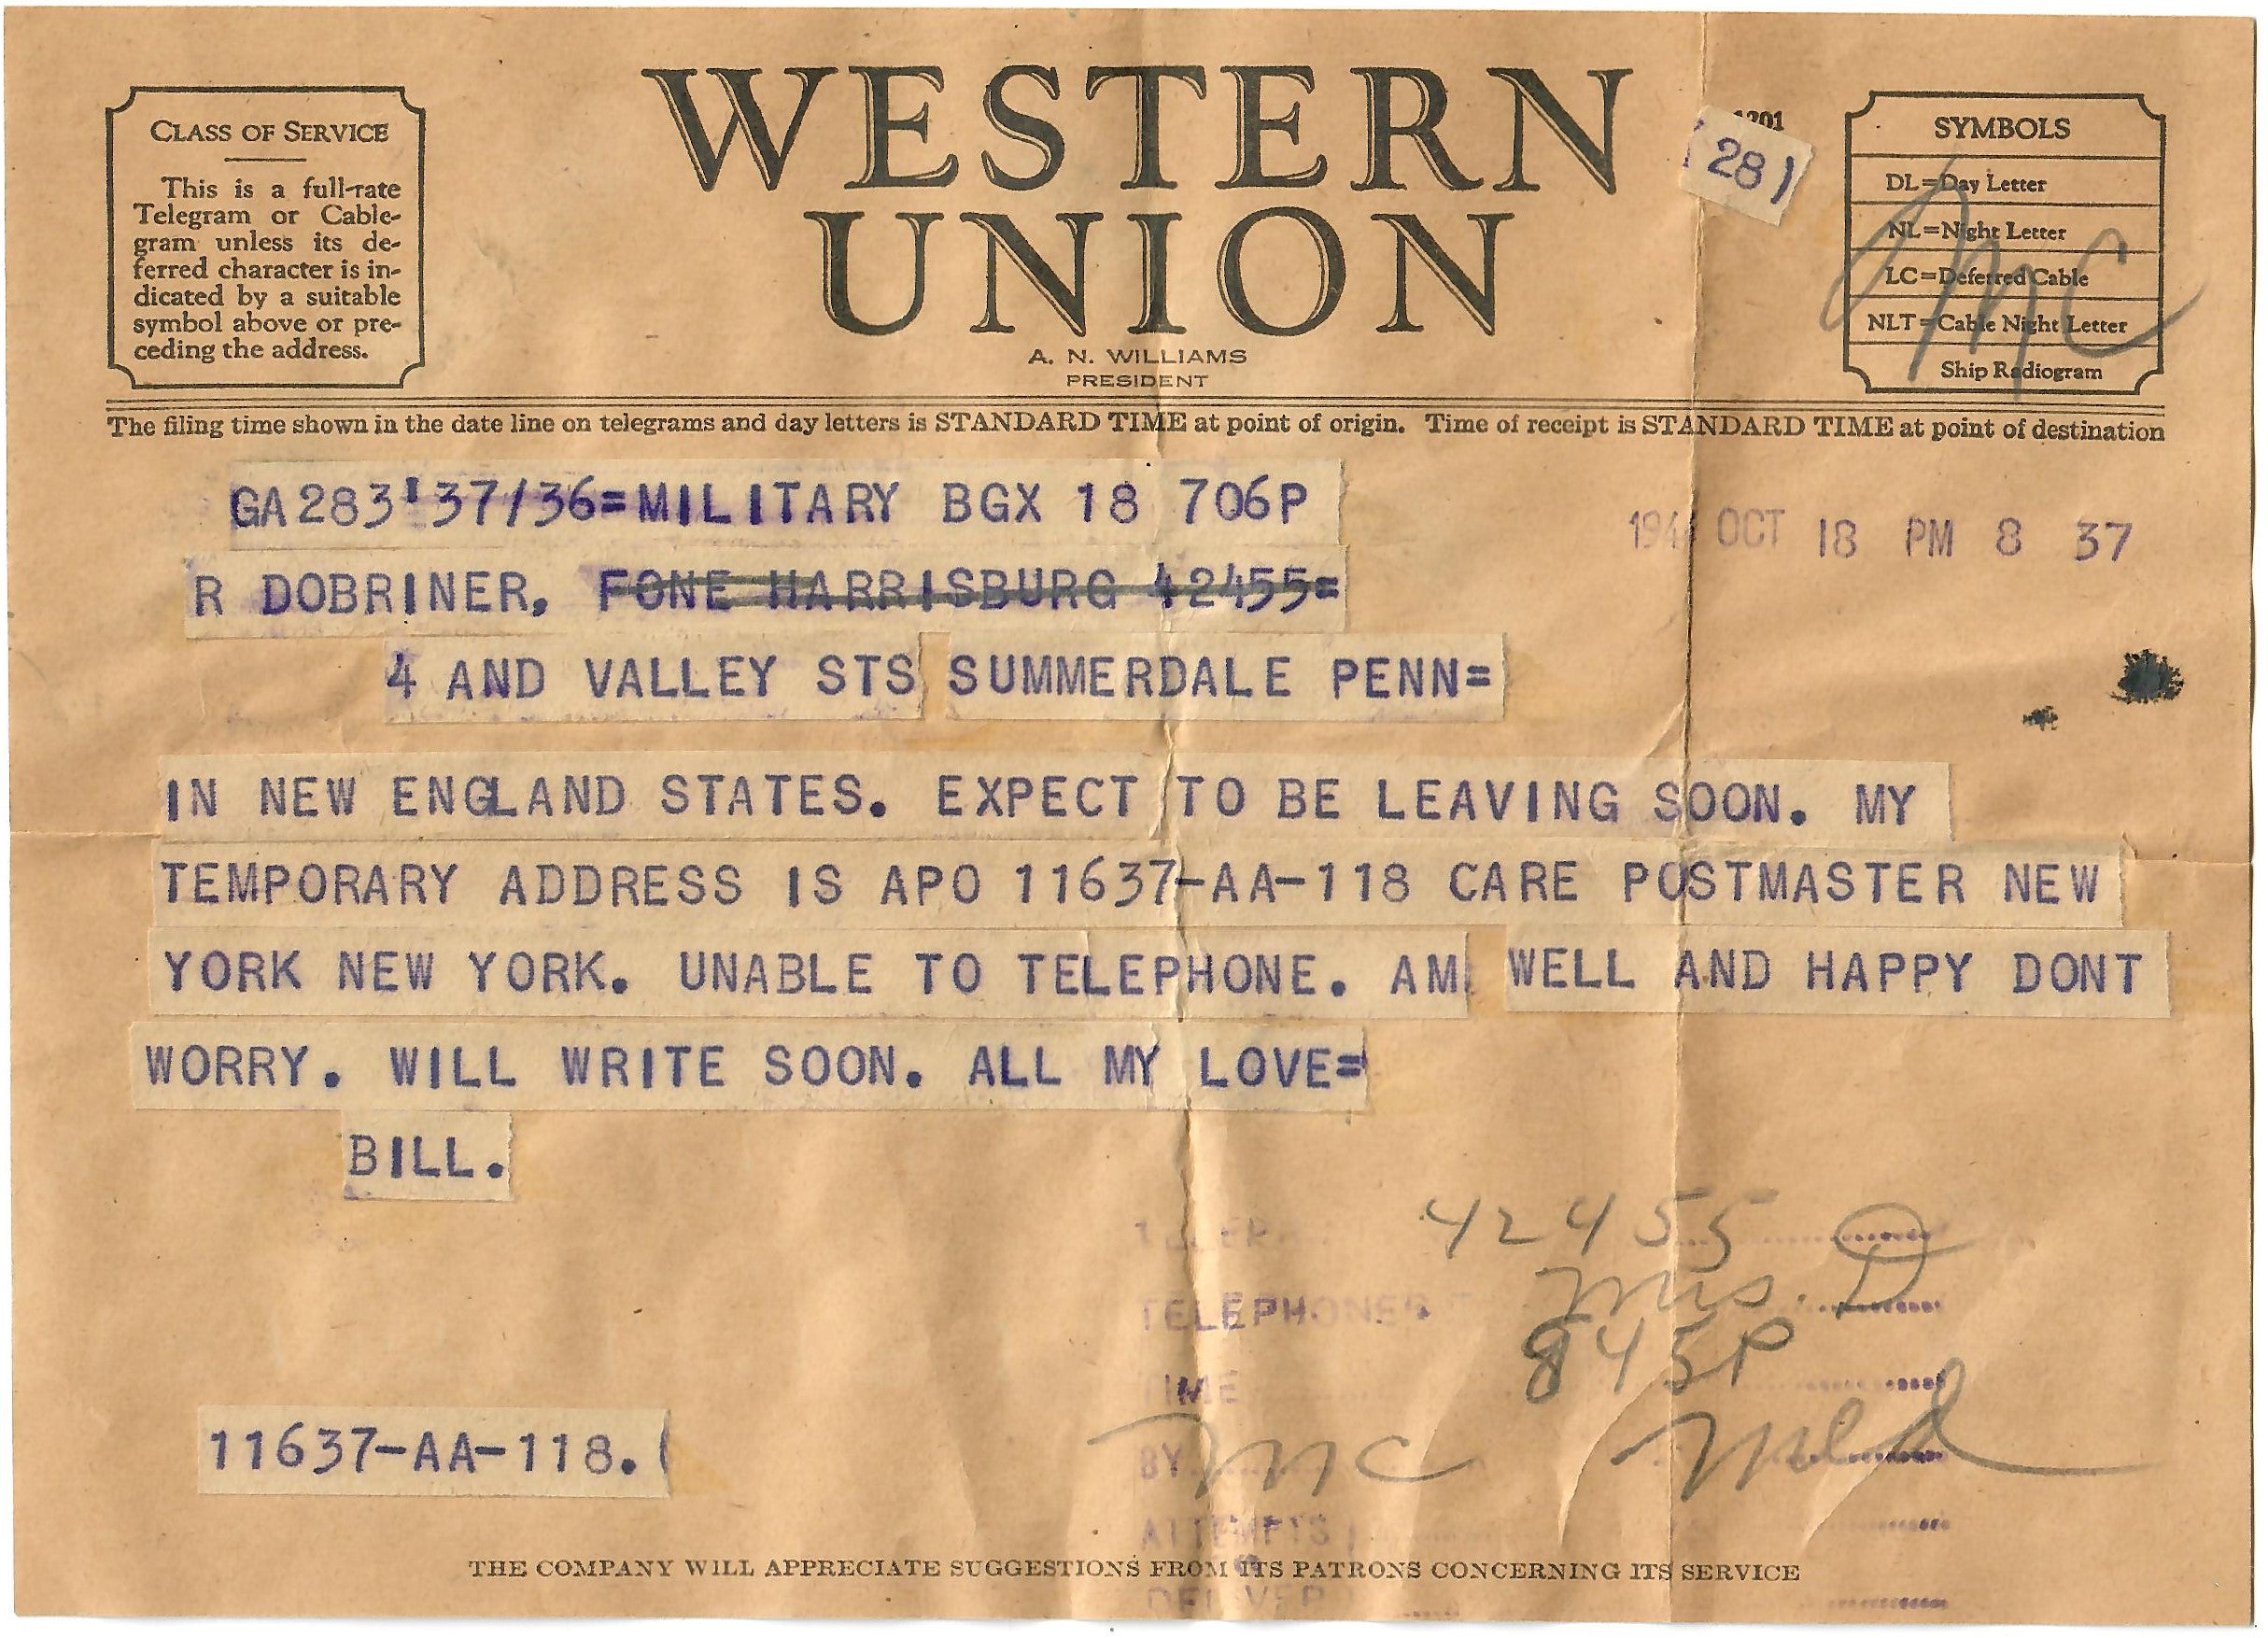 CLASS OF SERVICE
This is a full-rate
Telegram or Cable-
gram unless its de-
ferred character is in-
dicated by a suitable
symbol above or pre-
ceding the address.
WESTERN
UNION
A. N. WILLIAMS
PRESIDENT
1201
(28)
SYMBOLS
DL=Day Letter
NL=Night Letter
LC=Deferred Cable
NLT=Cable Night Letter
Ship Radiogram
mc
The filing time shown in the date line on telegrams and day letters is STANDARD TIME at point of origin. Time of receipt is STANDARD TIME at point of destination
GA283 37/36=MILITARY BGX 18 706P
OCT 18 PM 8 37
R DOBRINER, FONE HARRISBURG 42455=
4 AND VALLEY STS SUMMERDALE PENN=
IN NEW ENGLAND STATES. EXPECT TO BE LEAVING SOON. MY
TEMPORARY ADDRESS IS APO 11637-AA-118 CARE POSTMASTER NEW
YORK NEW YORK. UNABLE TO TELEPHONE. AM WELL AND HAPPY DONT
WORRY. WILL WRITE SOON. ALL MY LOVE=
BILL.
42455
TELEPHONED Mrs. D
TIME 845P
BY mc
ATTEMPTS
11637-AA-118.(
THE COMPANY WILL APPRECIATE SUGGESTIONS FROM ITS PATRONS CONCERNING ITS SERVICE
DELIVER